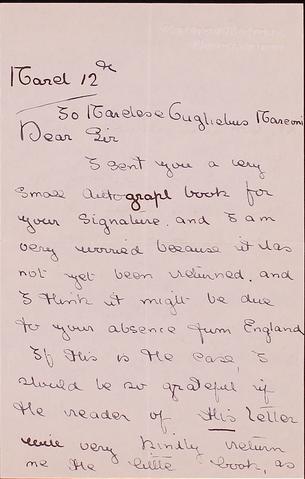 March 12th
To Marchese Guglielmo Marconi
Dear Sir
I sent you a very
small autograph book for
your signature. and I am
very worried because it has
not yet been returned. and
I think it might be due
to your absence from England
If this is the case, I
should be so grateful if
the reader of this letter
very kindly return
me the little book, as